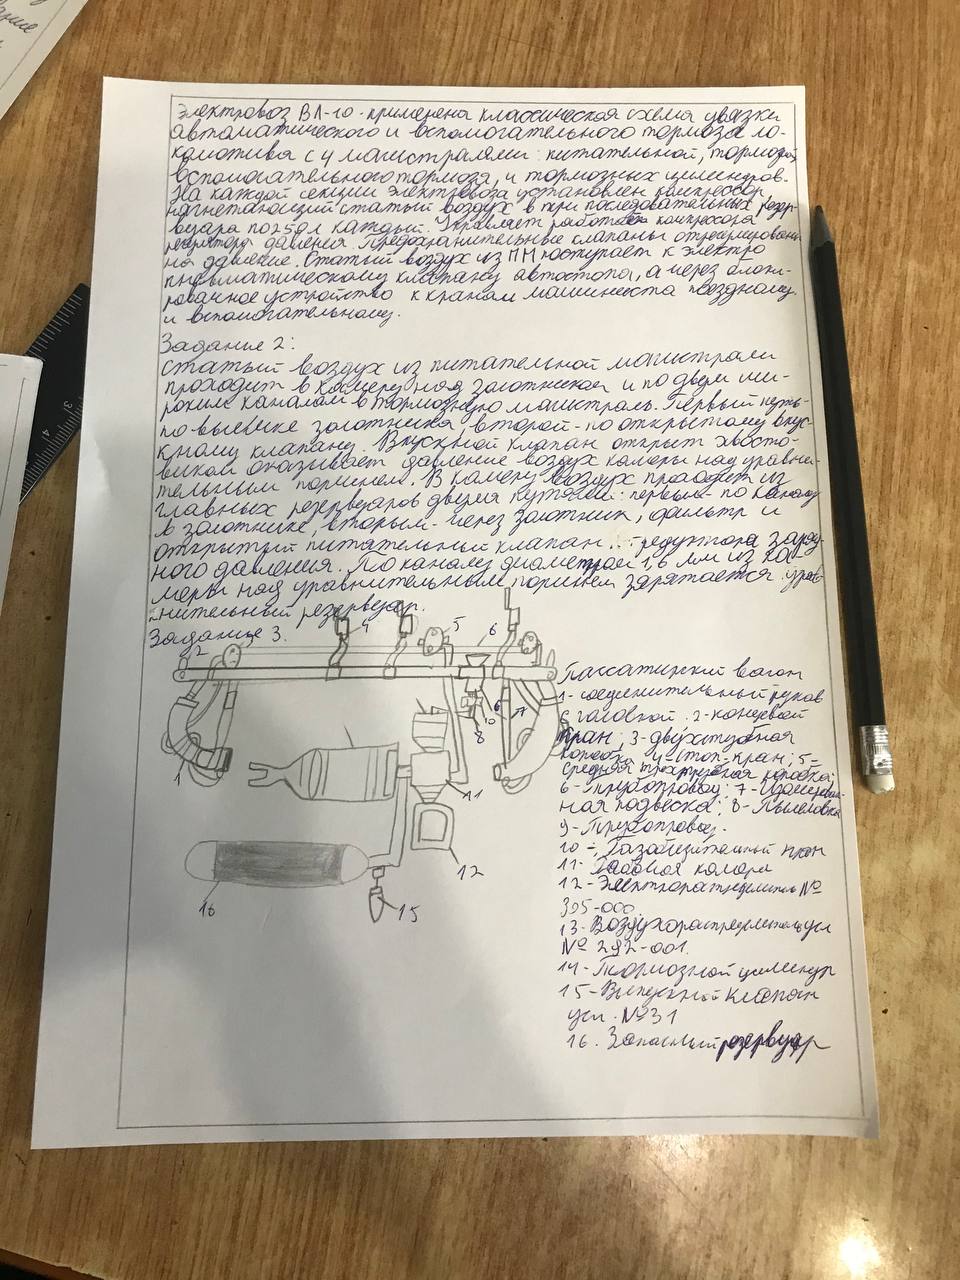 Электровоз ВЛ-10 применена классическая схема увязки
автоматического и вспомогательного тормоза ло-
комотива с 4 магистралями: питательной, тормозной
вспомогательного тормоза, и тормозных цилиндров.
На каждой секции электровоза установлен компрессор,
нагнетающий сжатый воздух в три последовательных резер-
вуара по 250л каждый. Управляет работой компрессора
регулятора давления. Предохранительные клапаны отрегулированы
на давление. Сжатый воздух из ПМ поступает к электро
пневматическому клапану автостопа, а через блоки-
ровочное устройство к кранам машиниста поездному
и вспомогательному.
Задание 2:
сжатый воздух из питательной магистрали
проходит в камеру над золотником и по двум ши-
роким каналам в тормозную магистраль. Первый путь-
по выемке золотника, второй - по открытому впус-
кному клапану. Впускной клапан открыт хвосто-
виком оказывает давление воздух камеры над уравни-
тельным поршнем. В камеру воздух проходит из
главных резервуаров двумя путями: первым - по каналу
в золотнике, вторым - через золотник, фильтр и
открытый питательный клапан редуктора заряд-
ного давления. По каналу диаметром 1,6 мм из ка
меры над уравнительным поршнем заряжается урав-
нительный резервуар.
Задание 3.
2 3 4 5 6
6 7
8 10
1
11
12
15
16
Пассажирский вагон
1- соединительный рукав
с головкой. 2-концевой
кран; 3-двухтрубная
коробка 4-стоп-кран; 5-
средняя трехтрубная коробка;
6-Трубопровод; 7-Изолирован-
ная подвеска; 8-Пылеловка
9-Трубопровод.
10 - Разобщительный кран
11- Рабочая камера
12-Электрораспределитель №
305-000
13-Воздухораспределитель усл
№ 292-001.
14-Тормозной цилиндр
15-Выпускной клапан
усл. №31
16. Запасный резервуар